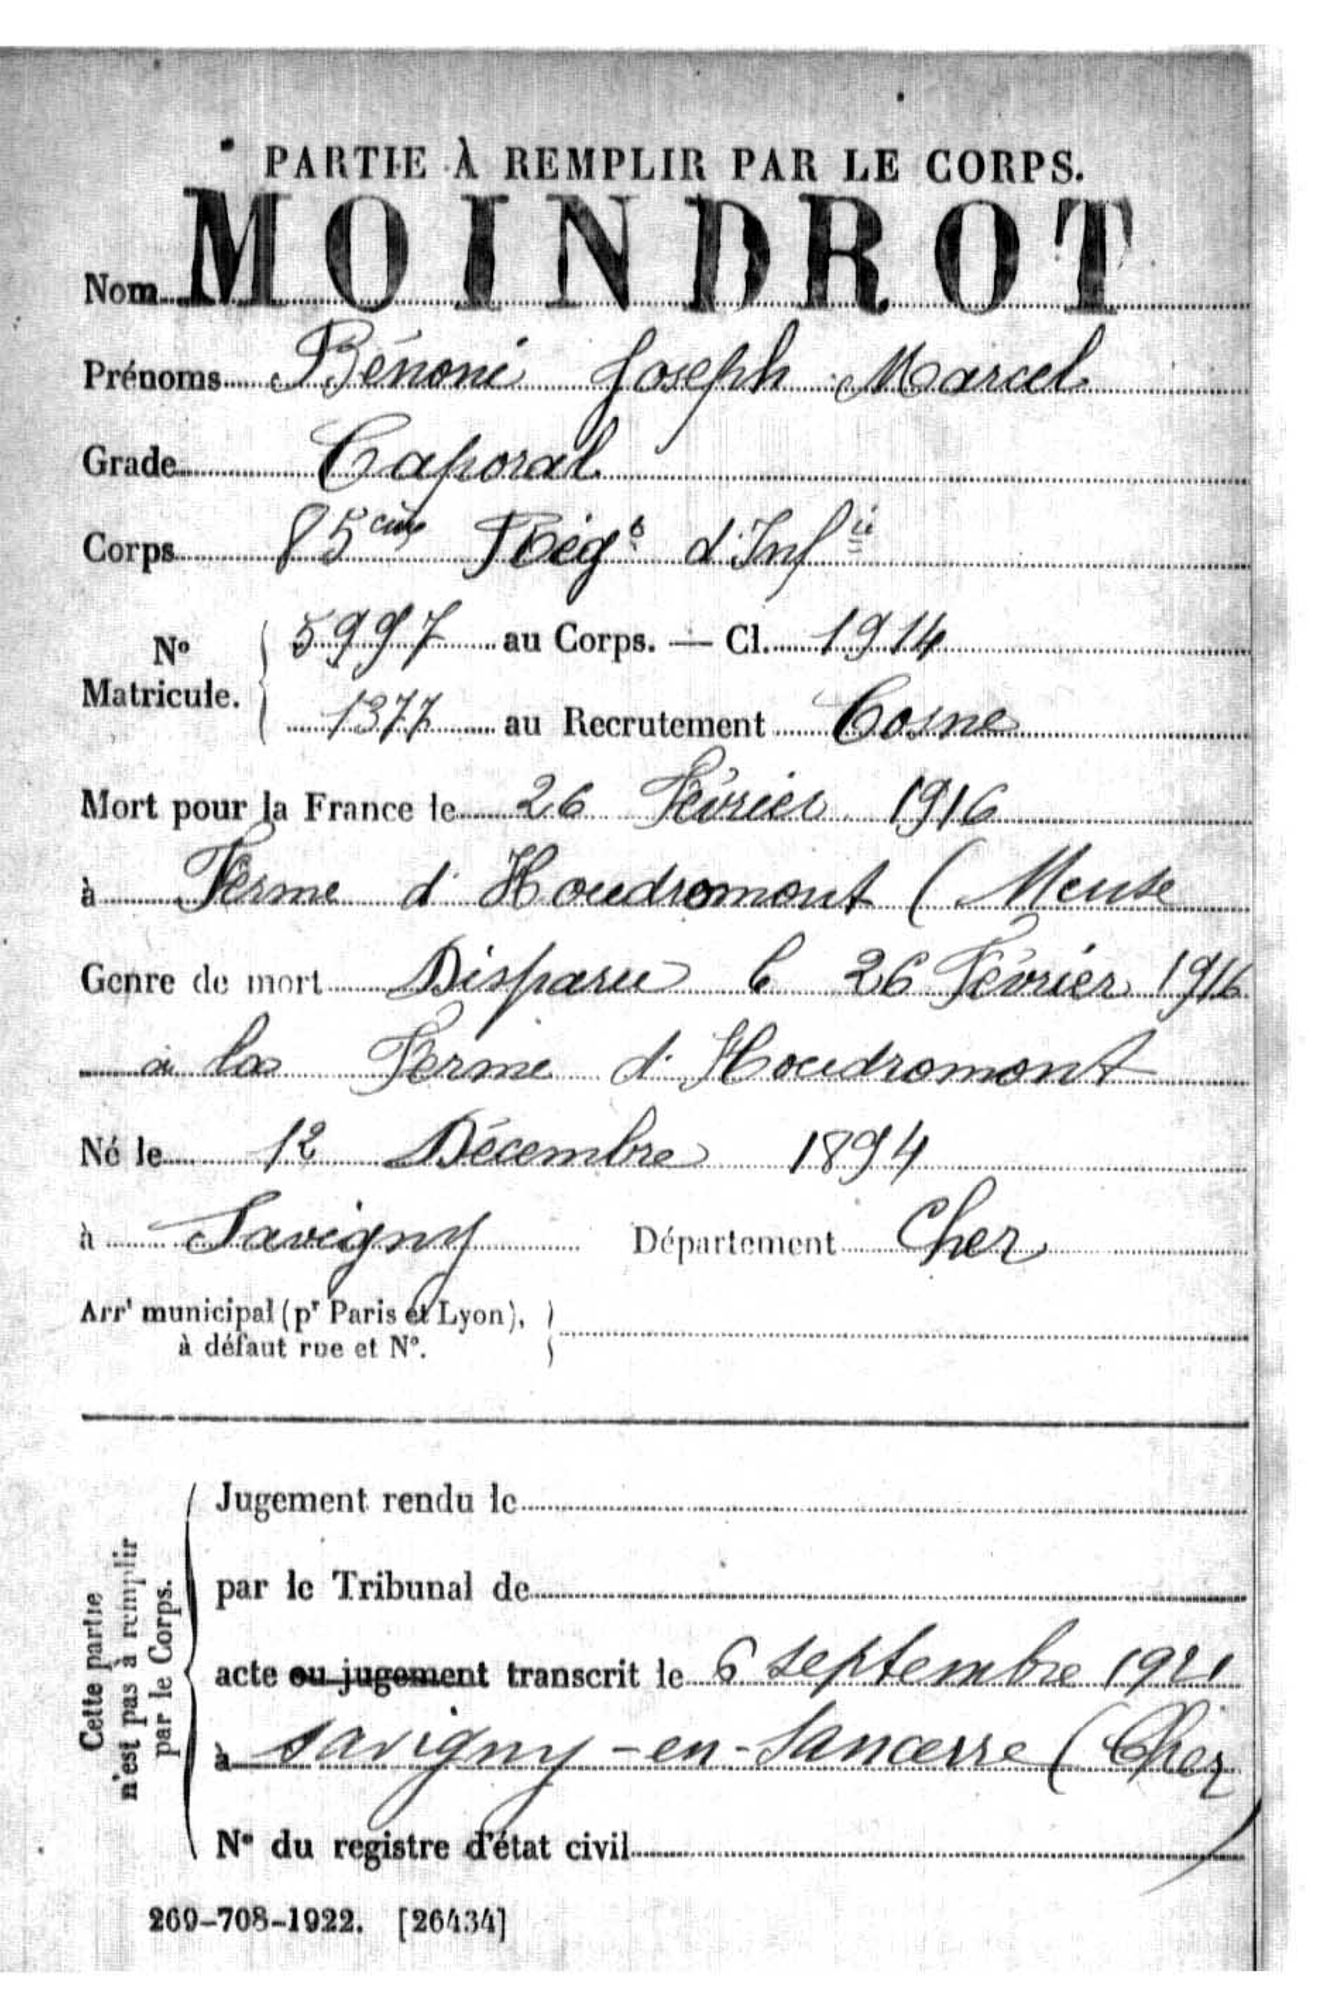 PARTIE À REMPLIR PAR LE CORPS.
Nom MOINDROT
Prénoms Bénoni Joseph Marcel
Grade Caporal
Corps 85ème Régt d'Infie
No Matricule. 5997 au Corps. — Cl. 1914
1377 au Recrutement Cosne
Mort pour la France le 26 Février 1916
à Ferme d'Houdromont (Meuse
Genre de mort Disparu le 26 Février 1916
à la Ferme d'Houdromont
Né le 12 Décembre 1894
à Savigny Département Cher
Arrt municipal (pr Paris et Lyon),
à défaut rue et No.
Cette partie
n'est pas à remplir
par le Corps.
Jugement rendu le
par le Tribunal de
acte ou jugement transcrit le 6 septembre 1921
à Savigny-en-Sancerre (Cher)
No du registre d'état civil
269-708-1922. [26434]